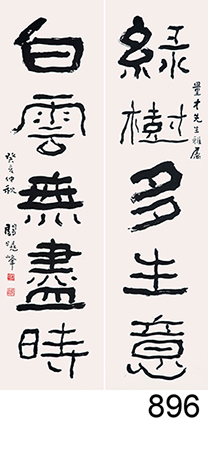 綠樹多生意
量才先生雅屬
白雲無盡時
癸亥仲秋
關曉峯
896